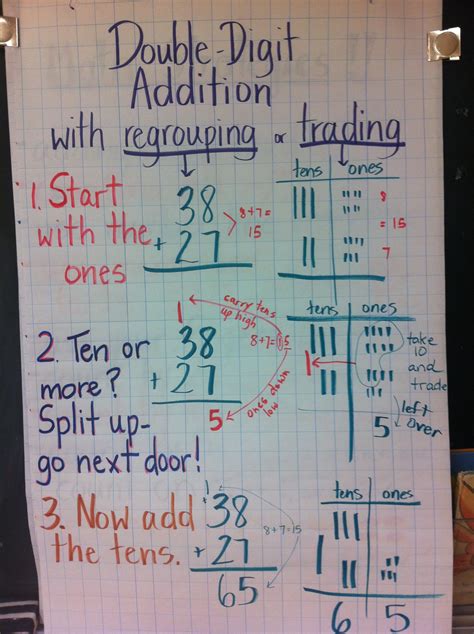 Double-Digit
Addition
with regrouping or trading
1. Start
with the
ones
38
+ 27
8+7=
15
tens ones
8
= 15
7
2. Ten or
more?
Split up-
go next door!
1
38
+ 27
5
carry tens
up high
8+7=15
ones down
low
tens ones
1
take
10
and
trade
left
over
5
3. Now add
the tens.
1
38
+ 27
65
8+7=15
tens ones
6 5